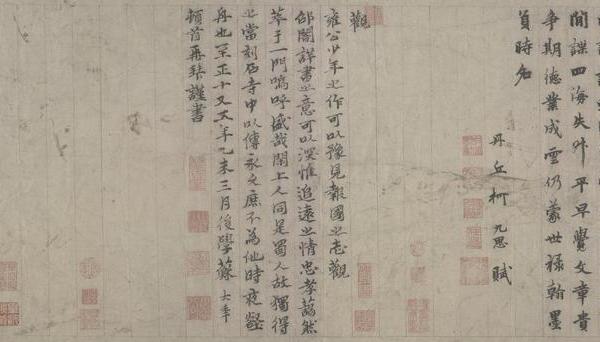 間諜四海失升平早覺文章貴
爭期德業成雲仍蒙世祿翰墨
負時名
丹丘柯九思賦
觀
雍公少年之作可以豫見報國之志觀
邵閣詳書之意可以深惟追遠之情忠孝藹然
萃于一門嗚呼盛哉閒上人同是蜀人故獨得
之當刻石寺中以傳永久庶不為他時夜壑
舟也至正十又五年乙未三月後學蘇大年
頓首再拜謹書